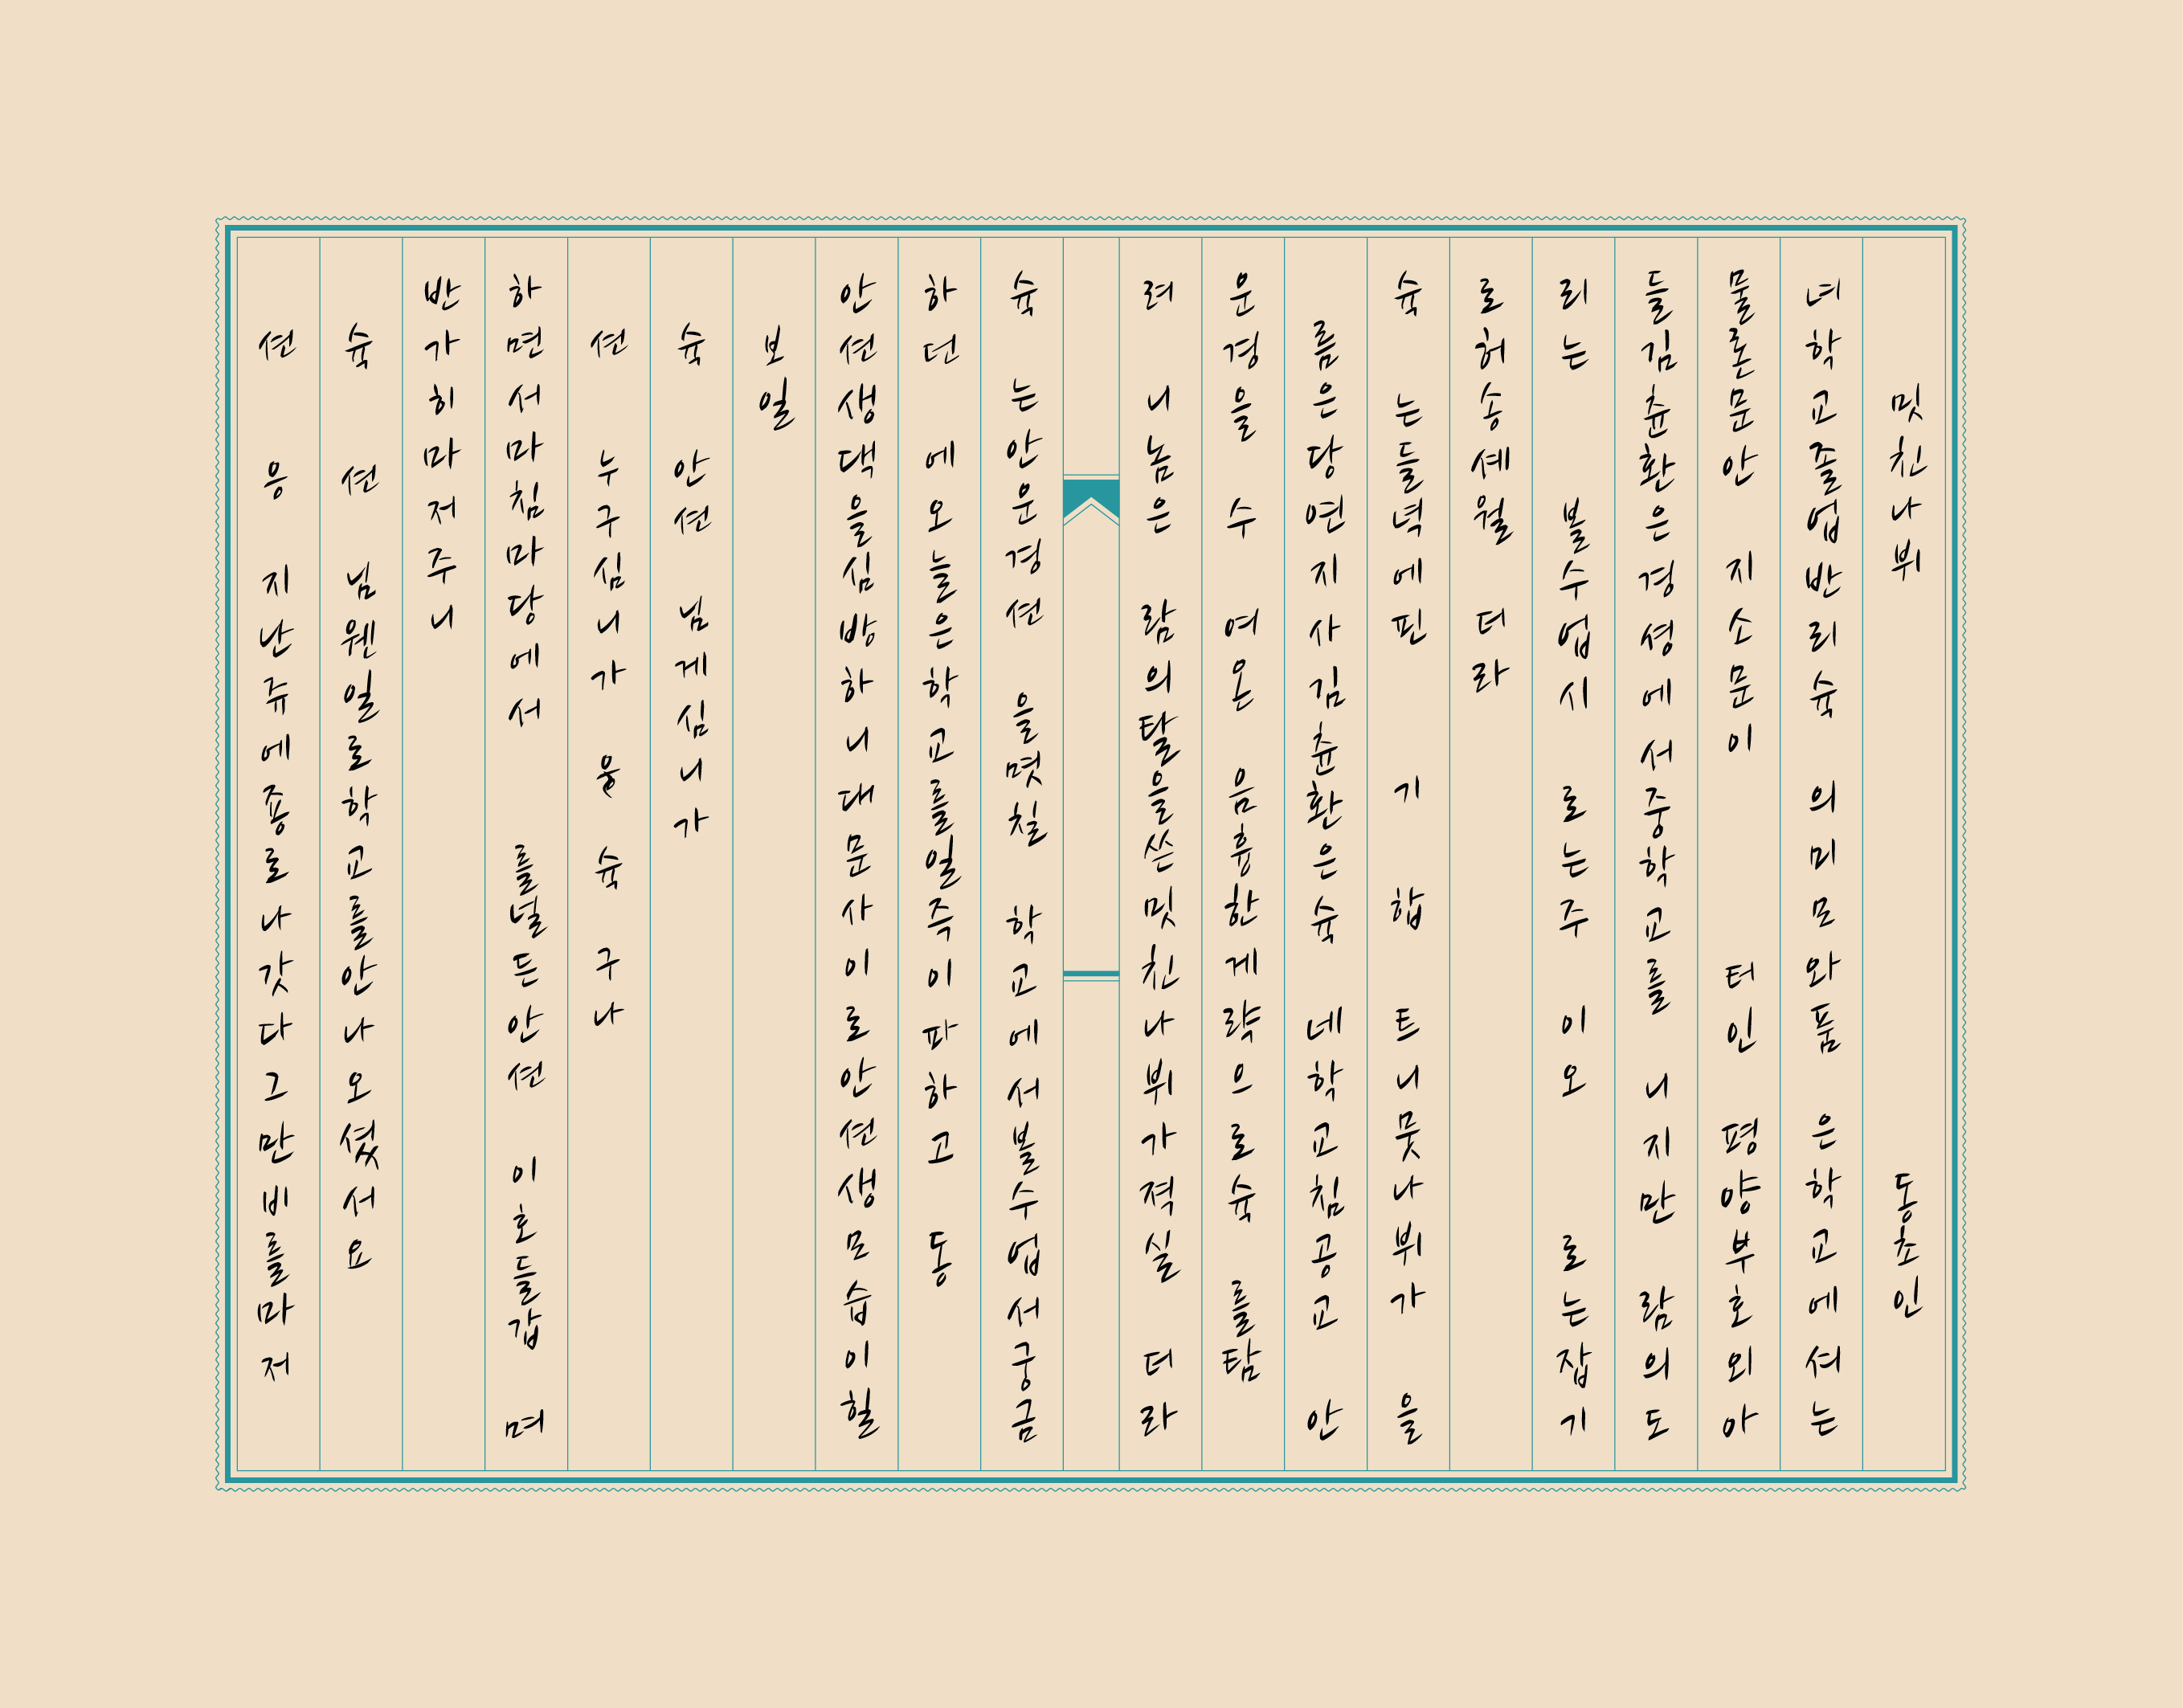 밋친나뷔 동초인
녀학교졸업반리슉 의미모와품 은학교에셔는
물론문안 지소문이 터인 평양부호외아
들김츈환은경셩에서중학교를 니지만 람의도
리는 볼수업시 로는주 이오 로는잡기
로허송셰월 더라
슉 는들녁에핀 기 합 트니뭇나뷔가 을
름은당연지사김츈환은슉 네학교침공교 안
운경을 수 여온 음흉한게략으로슉 를탐
려 니놈은 람의탈을쓴밋친나뷔가젹실 더라
슉 는안운경션 을몃칠 학교에서볼수업서궁금
하던 에오늘은학교를일즉이파하고 동
안션생댁을심방하니대문사이로안션생모습이힐
보일
슉 안션 님게심니가
션 누구심니가 웅 슉 구나
하면서마침마당에서 를널든안션 이호들갑 며
반가히마저주니
슉 션 님웬일로학교를안나오셨서요
션 응 지난쥬에죵로나갓다그만비를마저